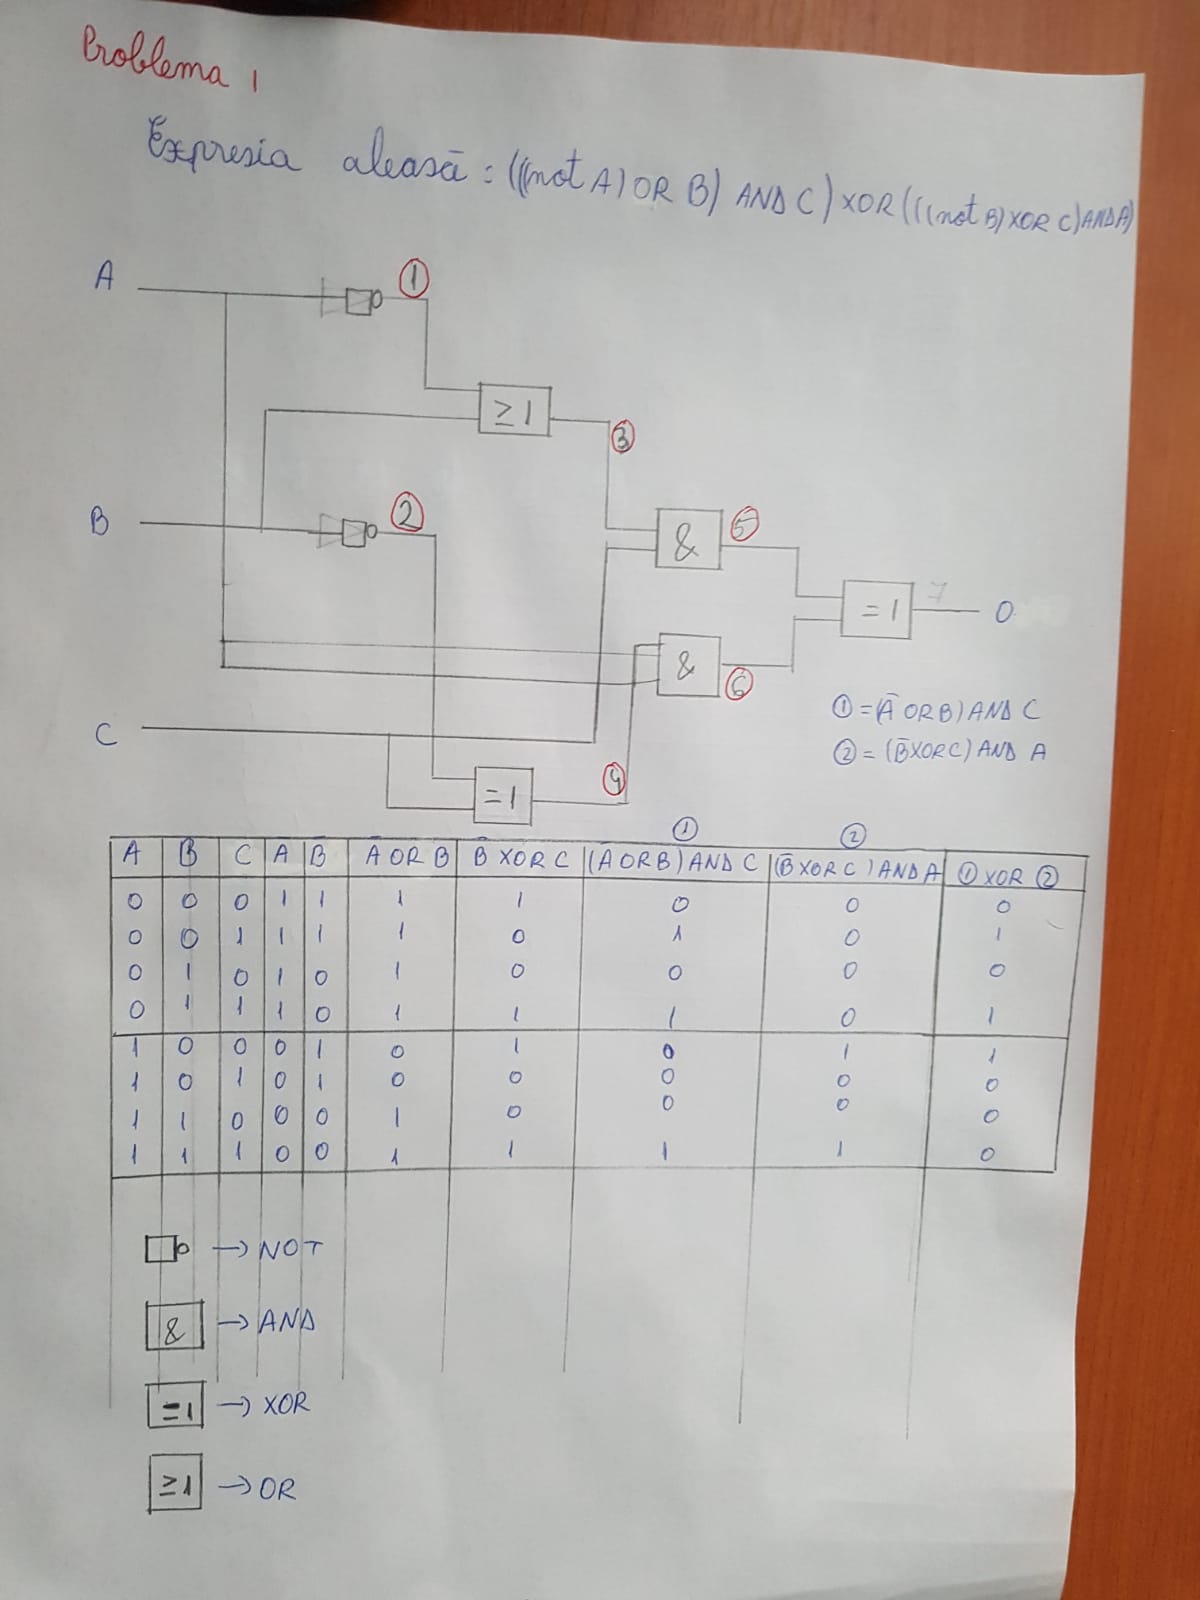 Problema 1
Expresia aleasă : (((not A) OR B) AND C) XOR (((not B) XOR C) AND A)
A
①
≥1
③
B
②
&
⑤
=1
7
O
&
⑥
① = (Ā OR B) AND C
② = (B̄ XOR C) AND A
C
=1
④
① ②
A B C Ā B̄ Ā OR B B̄ XOR C (Ā OR B) AND C (B̄ XOR C) AND A ① XOR ②
0 0 0 1 1 1 1 0 0 0
0 0 1 1 1 1 0 1 0 1
0 1 0 1 0 1 0 0 0 0
0 1 1 1 0 1 1 1 0 1
1 0 0 0 1 0 1 0 1 1
1 0 1 0 1 0 0 0 0 0
1 1 0 0 0 1 0 0 0 0
1 1 1 0 0 1 1 1 1 0
→ NOT
& → AND
=1 → XOR
≥1 → OR